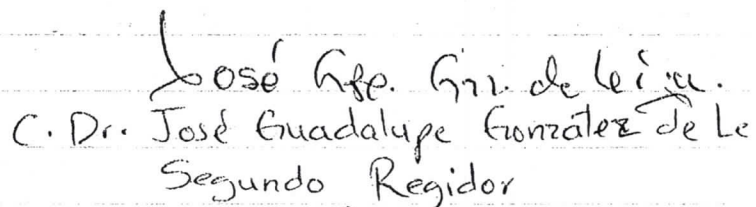 José Gpe. Gnz. de Leija.
C. Dr. José Guadalupe Gonzátez de Le
Segundo Regidor